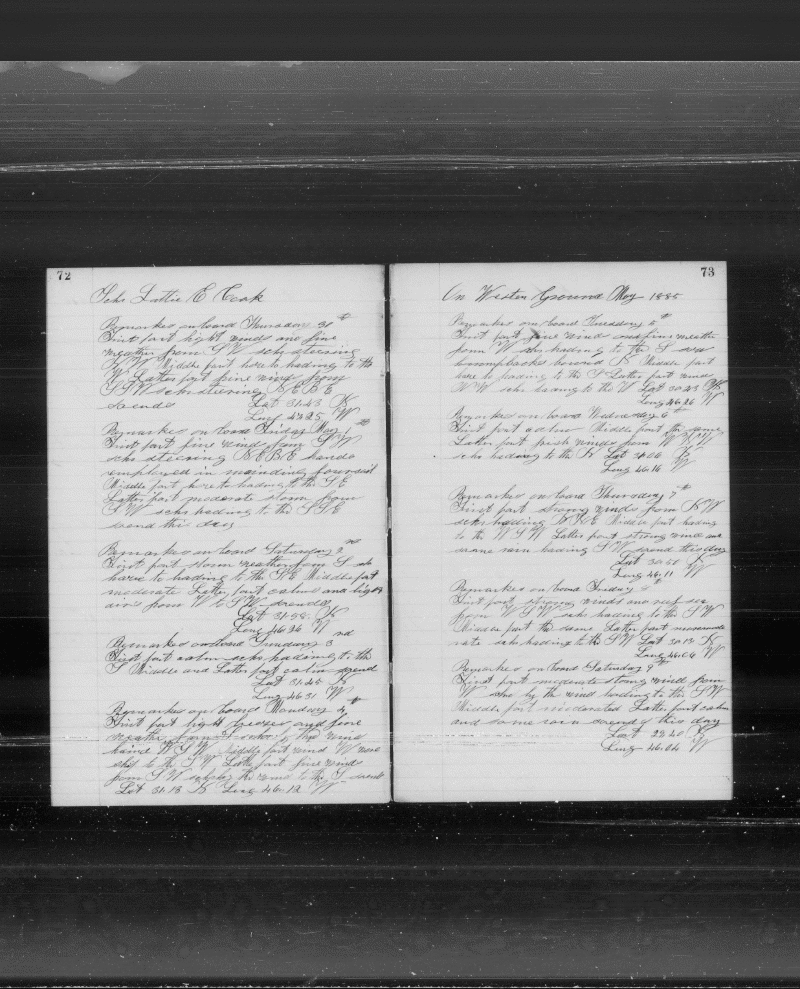 72
Schr Lottie E Cook
Remarkes on board Thursday 31th
First part light winds and fine
weather from S W schr steering
N W Middle part hove to hading to the
W Latter part fine wind from
S S W schr steering N E B E
so ends Lat 31.43 N
Long 47.25 W
Remarkes on board Friday May 1th
First part fine wind from S W
schr steering N E B E hands
employed in mainding foursail
Middle part hove to hading to the S E
Latter part moderate storm from
S W schr hading to the S S E
soend this day
Remarkes on board Saturday 2nd
First part storm weather from S sch
hove to hading to the S E Middle part
moderate Latter part calms and light
airs from W to S W soends
Lat 31.58 N
Long 46.36 W
Remarkes on board Sunday 3rd
First part calm schr hading to the
S Middle and Latter part calm soend
Lat 31.45 N
Long 46.31 W
Remarkes on board Monday 4th
First part light breezes and fine
weather from by the wind
W S W Middle part wind W
schr to the S W Latter part fine wind
from S W schr by the wind to the S soends
Lat 31.13 N Long 46.12 W
73
On Western Ground May 1885
Remarkes on board Tuesday 5th
First part fine wind and fine weather
from W schr hading to the S saw
hoompbacks bound N Middle part
hove to hading to the S Latter part winds
W W schr hading to the W Lat 30.23 N
Long 46.26 W
Remarkes on board Wednesday 6th
First part calm Middle part the same
Latter part fresh winds from
schr hading to the N Lat 30.06 N
Long 46.16 W
Remarkes on board Thursday 7th
First part strong winds from N W
schr hading N N E Middle part hading
to the W S W Latter part strong wind and
some rain hading S W soend this day
Lat 30.51 N
Long 46.11 W
Remarkes on board Friday 8
First part strong winds and ruf sea
from W S W schr hading to the S W
Middle part the same Latter part moderate
schr hading to the S W Lat 30.13 N
Long 46.04 W
Remarkes on board Saturday 9th
First part moderate strong wind from
W schr by the wind hading to the S W
Middle part moderated Latter part calm
and some rain soends this day
Lat 29.40 N
Long 46.04 W